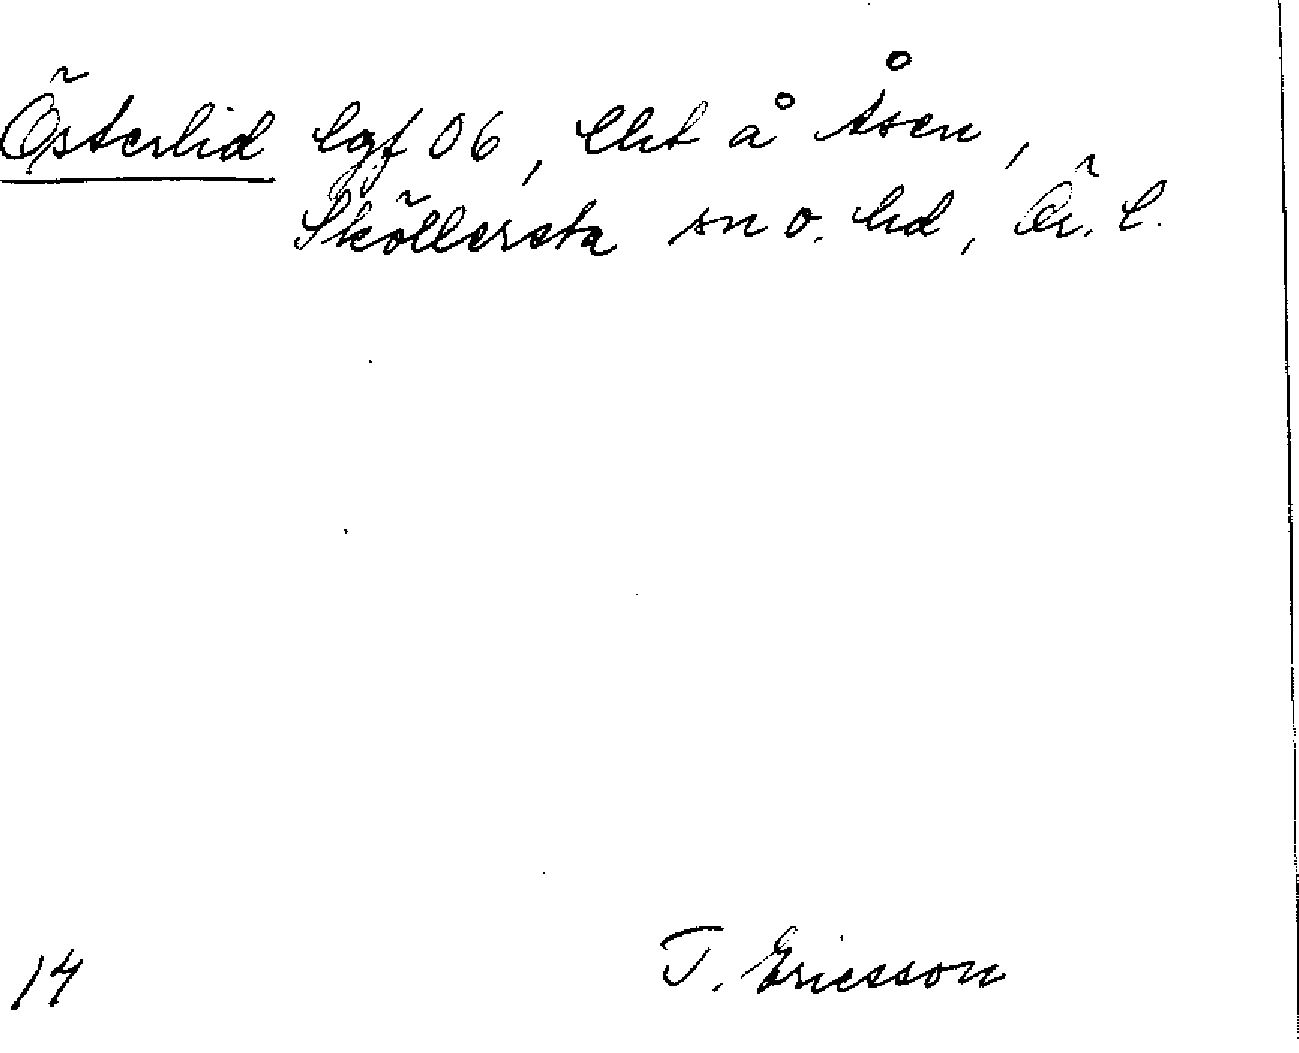 Österlid lgf 06, lht å Åsen,
Sköllersta sn o. hd, Ör. l.
14 T. Ericsson